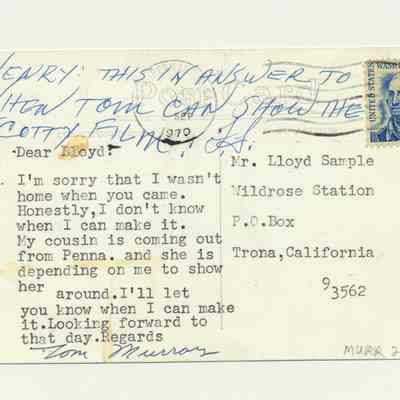 HENRY: THIS IN ANSWER TO
WHEN TOM CAN SHOW ME
SCOTTY FILM.
Post Card
SEP
1970
UNITED STATES
Dear Lloyd:
I'm sorry that I wasn't
home when you came.
Honestly,I don't know
when I can make it.
My cousin is coming out
from Penna. and she is
depending on me to show
her
around.I'll let
you know when I can make
it.Looking forward to
that day.Regards
Tom Murray
Mr. Lloyd Sample
Wildrose Station
P.O.Box
Trona,California
93562
MURR 2